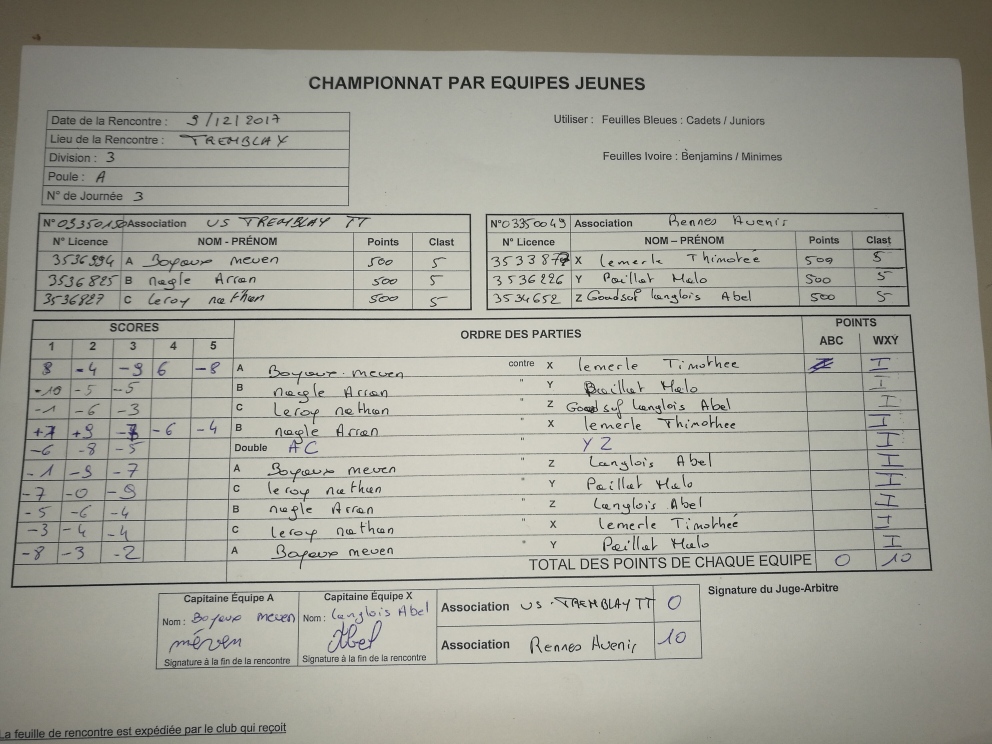 CHAMPIONNAT PAR EQUIPES JEUNES
Date de la Rencontre : 9/12/2017
Utiliser : Feuilles Bleues : Cadets / Juniors
Lieu de la Rencontre : TREMBLAY
Division : 3
Feuilles Ivoire : Benjamins / Minimes
Poule : A
N° de Journée 3
N°03350150 Association US TREMBLAY TT
N°03350049 Association Rennes Avenir
N° Licence NOM - PRÉNOM Points Clast
N° Licence NOM – PRÉNOM Points Clast
3536994 A Boyoux meven 500 5
X lemerle Thimotée 509 5
3536825 B nagle Arran 500 5
3536226 Y Paillat Malo 500 5
3536827 C leroy nathan 500 5
3534652 Z Goudsof langlois Abel 500 5
SCORES ORDRE DES PARTIES POINTS
1 2 3 4 5 ABC WXY
8 -4 -9 6 -8 A Boyoux meven contre X lemerle Timothée I
-10 -5 -5 B nagle Arran " Y Paillat Malo I
-1 -6 -3 C Leroy nathan " Z Langlois Abel I
+7 +9 -6 -4 B nagle Arran " X lemerle Thimothée I
-6 -8 -5 Double AC " YZ I
-1 -9 -7 A Boyoux meven " Z Langlois Abel I
-7 -0 -9 C leroy nathan " Y Paillat Malo I
-5 -6 -4 B nagle Arran " Z Langlois Abel I
-3 -4 -4 C leroy nathan " X lemerle Timothée I
-8 -3 -2 A Boyoux meven " Y Paillat Malo I
TOTAL DES POINTS DE CHAQUE EQUIPE 0 10
Capitaine Équipe A Capitaine Équipe X
Signature du Juge-Arbitre
Nom : Boyoux meven Nom : Langlois Abel
Association US.TREMBLAY TT 0
méven Abel
Association Rennes Avenir 10
Signature à la fin de la rencontre Signature à la fin de la rencontre
La feuille de rencontre est expédiée par le club qui reçoit